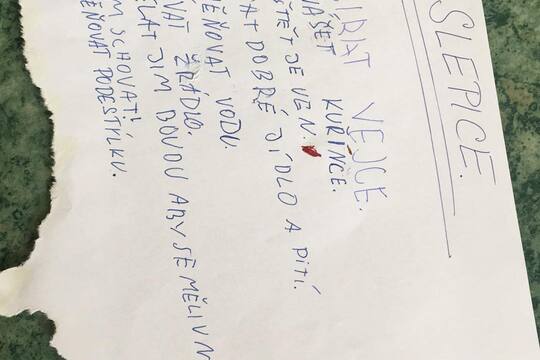 SLEPICE.
ÍRAT VĚJCE.
NÁŠET KUŘINCE.
ŠTĚT JE VEN.
AT DOBRÉ JÍDLO A PITÍ.
ĚŇOVAT VODU.
VAT ŽRÁDLO.
ĚLAT JIM BOUDU ABY SE MĚLI V N
M SCHOVAT!
ĚŇOVAT PODESTÝLKU.